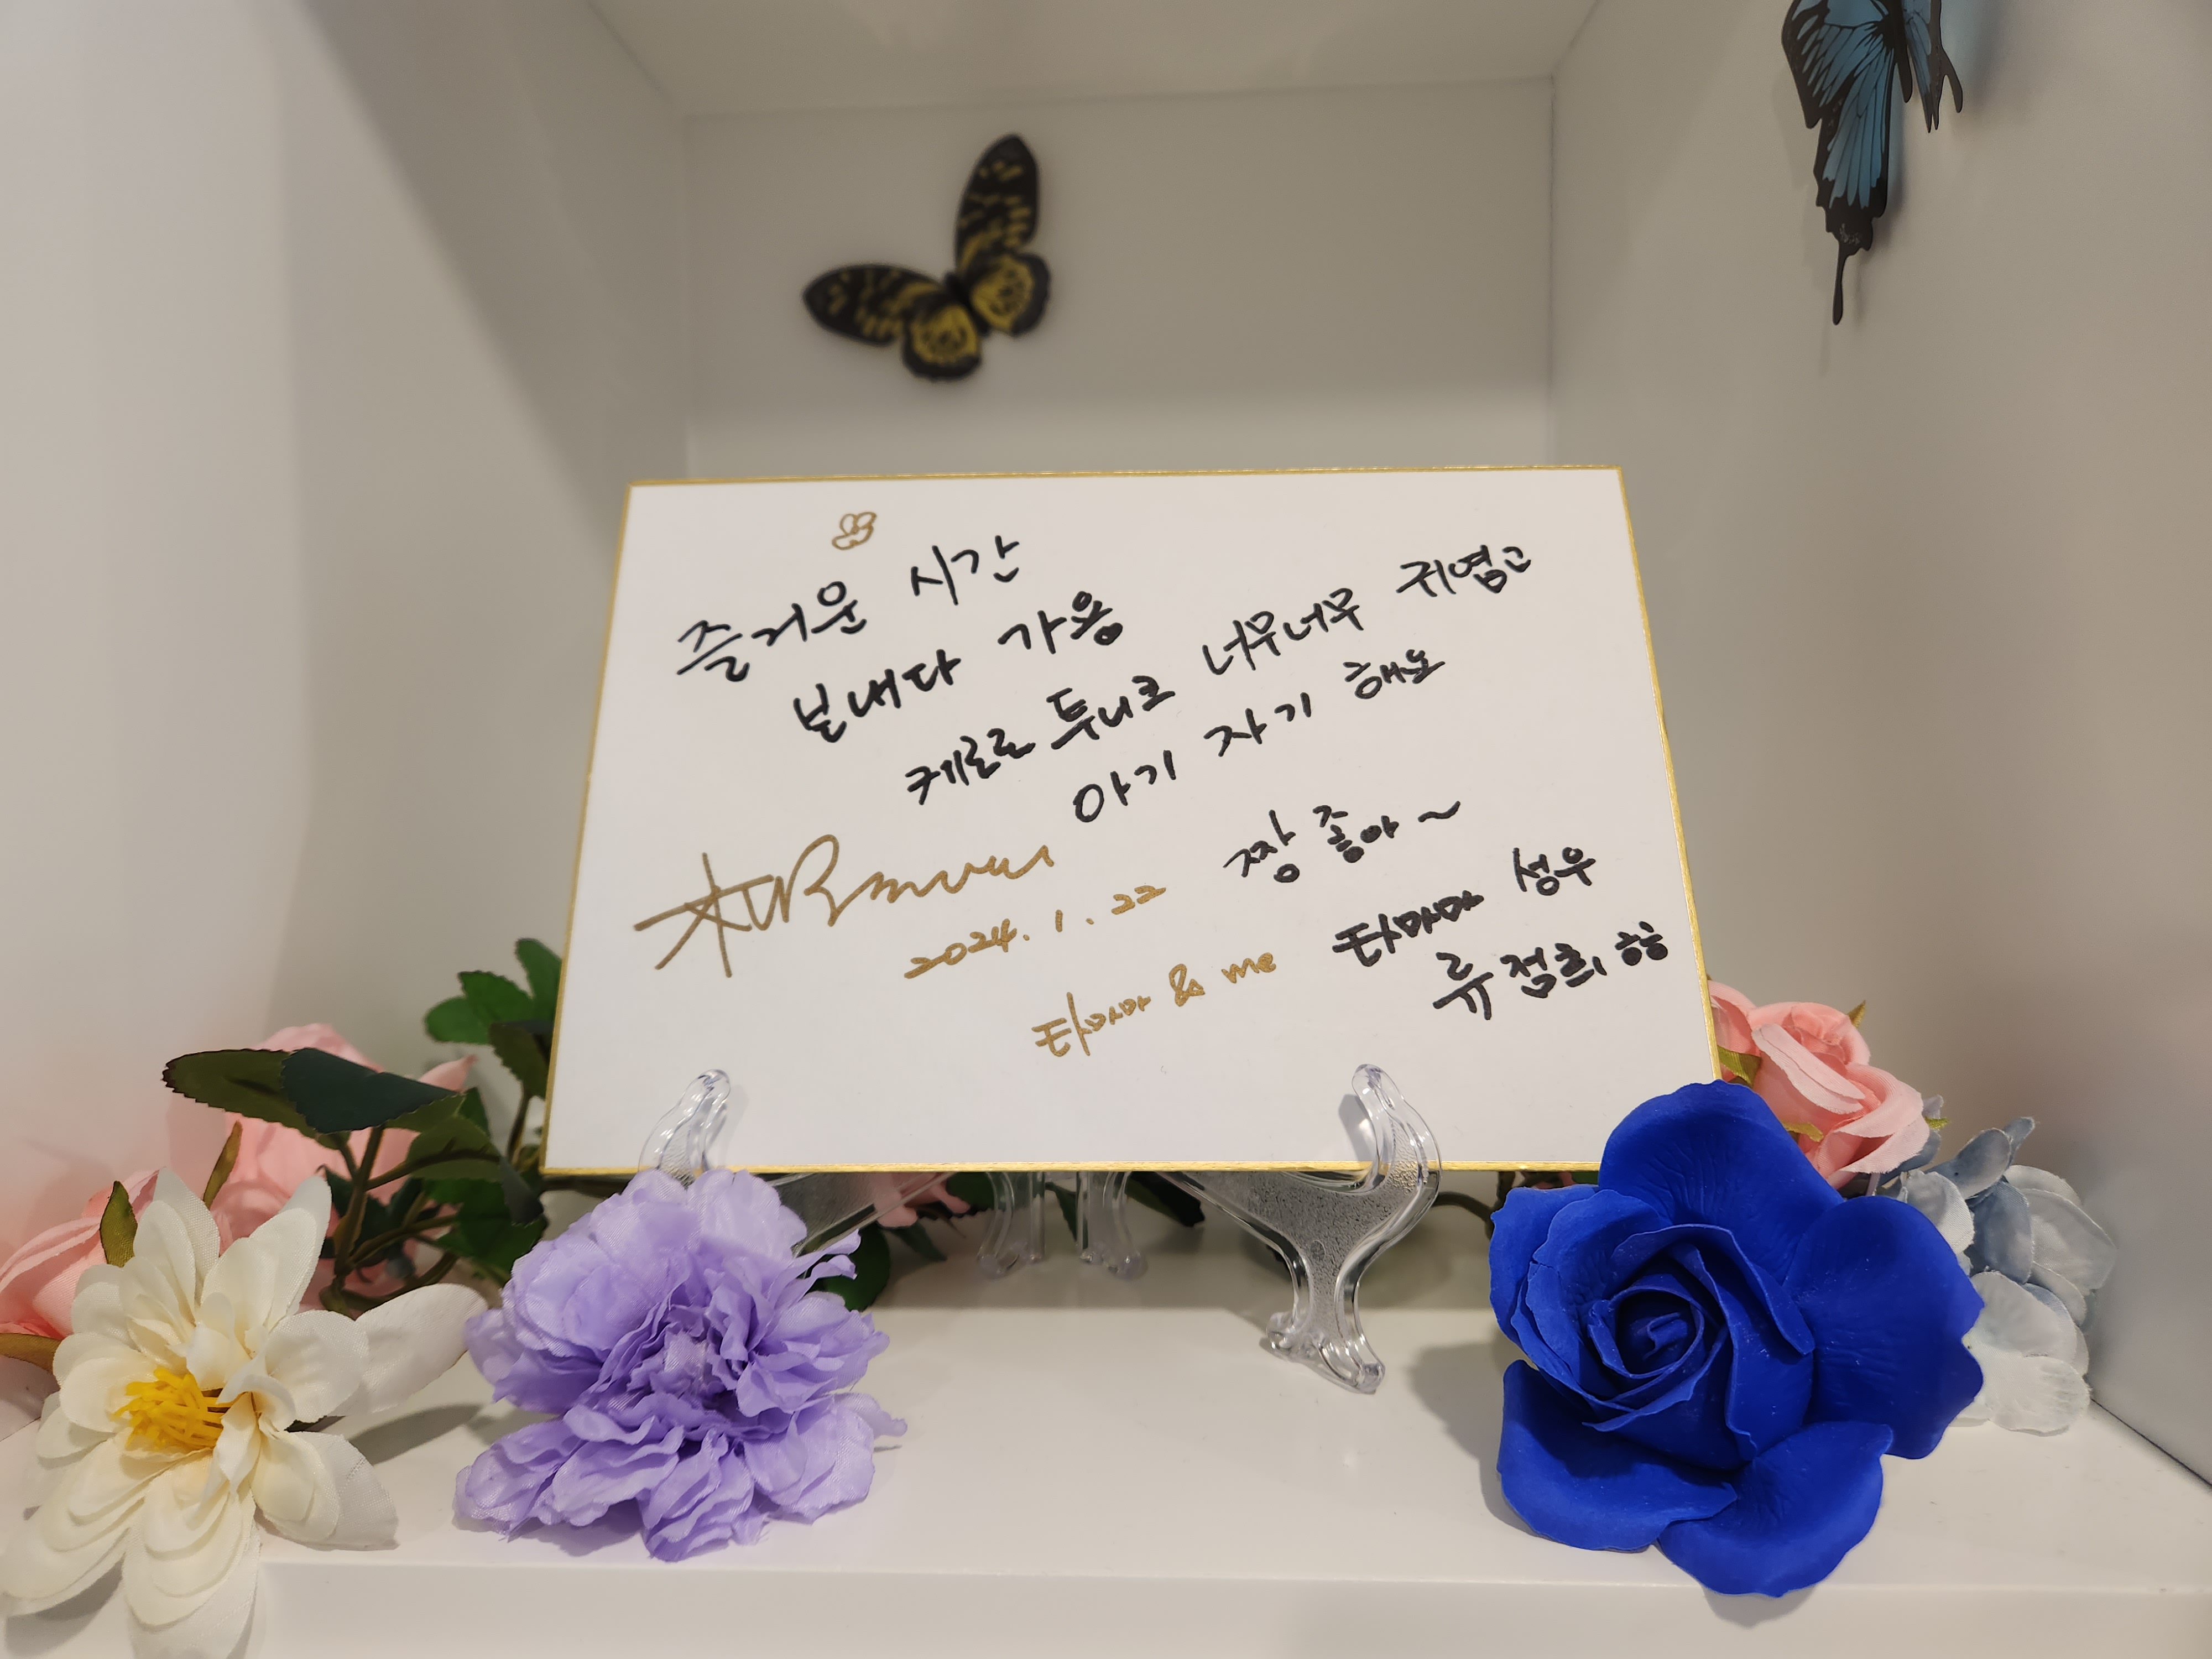 즐거운 시간
보내다 가용
케로로 투니크 너무너무 귀엽고
아기 자기 해요
짱 좋아~
2024. 1. 22
타마마 & me 타마마 성우
류점희 항